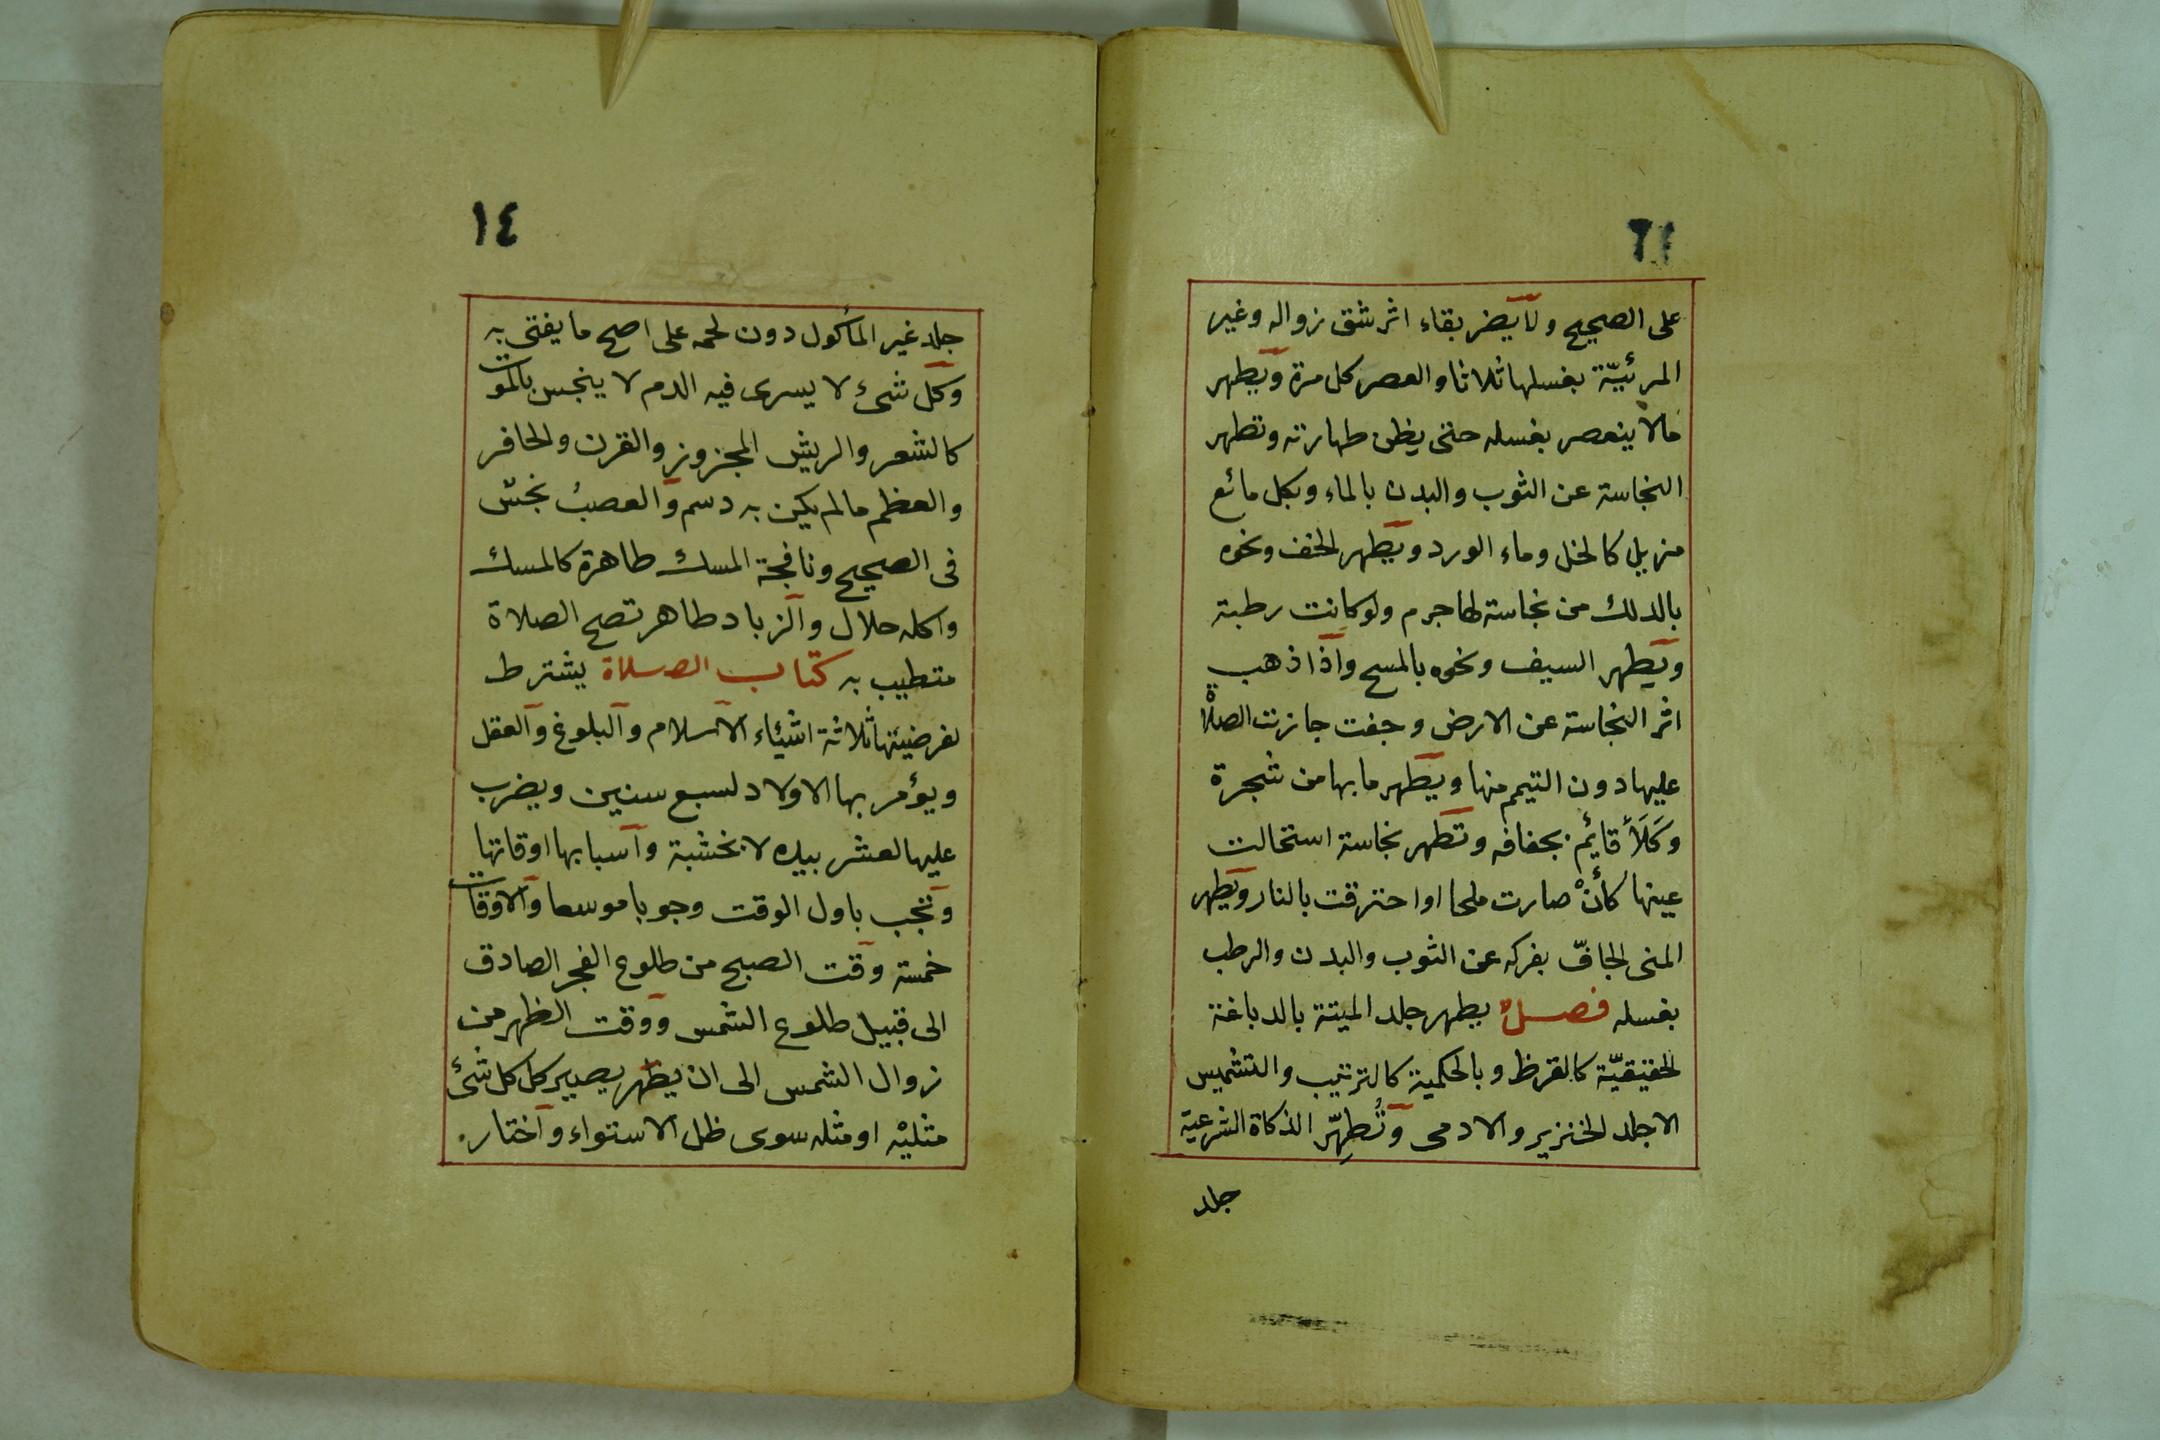 على الصحيح ولا يضر بقاء اثر شق زواله وغير
المرئيّة بغسلها ثلاثا والعصر كل مرة ويطهر
مالا ينعصر بغسله حتى يظن طهارته وتطهر
النجاسة عن الثوب والبدن بالماء وبكل مائع
مزيل كالخل وماء الورد ويطهر الخف ونحوه
بالدلك من نجاسة لها جرم ولو كانت رطبة
ويطهر السيف ونحوه بالمسح واذا ذهب
اثر النجاسة عن الارض وجفت جازت الصلاة
عليها دون التيمم منها ويطهر ما بها من شجرة
وكَلَأ قائم بجفافه وتطهر نجاسة استحالت
عينها كأنْ صارت ملحا او احترقت بالنار ويطهر
المنى الجافّ بفركه عن الثوب والبدن والرطب
بغسله فصل يطهر جلد الميتة بالدباغة
الحقيقيّة كالقرظ وبالحكمية كالتتريب والتشميس
الا جلد الخنزير والادمى وتُطهِّر الذكاة الشرعية
جلد
١٤
جلد غير المأكول دون لحمه على اصح ما يفتى به
وكل شئ لا يسرى فيه الدم لا ينجس بالموت
كالشعر والريش المجزوز والقرن والحافر
والعظم مالم يكن به دسم والعصب نجس
فى الصحيح ونافجة المسك طاهرة كالمسك
واكله حلال والزباد طاهر تصح الصلاة
متطيب به كتاب الصلاة يشترط
لفرضيتها ثلاثة اشياء الاسلام والبلوغ والعقل
ويؤمر بها الاولاد لسبع سنين ويضرب
عليها لعشر بيده لا بخشبة واسبابها اوقاتها
وتجب باول الوقت وجوبا موسعا والاوقات
خمسة وقت الصبح من طلوع الفجر الصادق
الى قبيل طلوع الشمس ووقت الظهر من
زوال الشمس الى ان يظهر يصير كل كل شئ
مثليْه او مثله سوى ظل الاستواء واختار